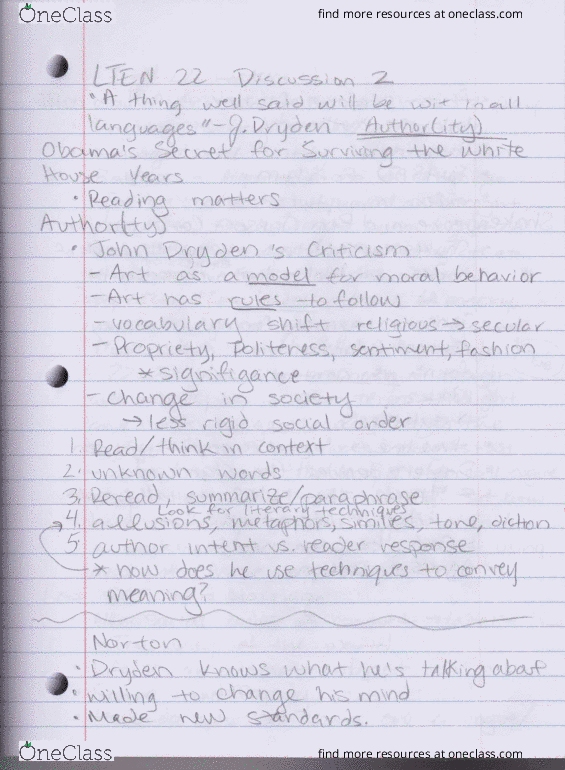 OneClass
find more resources at oneclass.com
LTEN 22 Discussion 2
• "A thing well said will be wit in all
languages" - J. Dryden Author(ity)
Obama's Secret for Surviving the White
House Years
• Reading matters
Author(ity)
• John Dryden's Criticism
- Art as a model for moral behavior
- Art has rules to follow
- vocabulary shift religious → secular
- Propriety, Politeness, sentiment, fashion
* signifigance
- change in society
→ less rigid social order
1. Read/think in context
2. unknown words
3. Reread, summarize/paraphrase
Look for literary techniques
4. allusions, metaphors, similes, tone, diction
5. author intent vs. reader response
* how does he use techniques to convey
meaning?
Norton
• Dryden knows what he's talking about
• willing to change his mind
• Made new standards.
OneClass
find more resources at oneclass.com